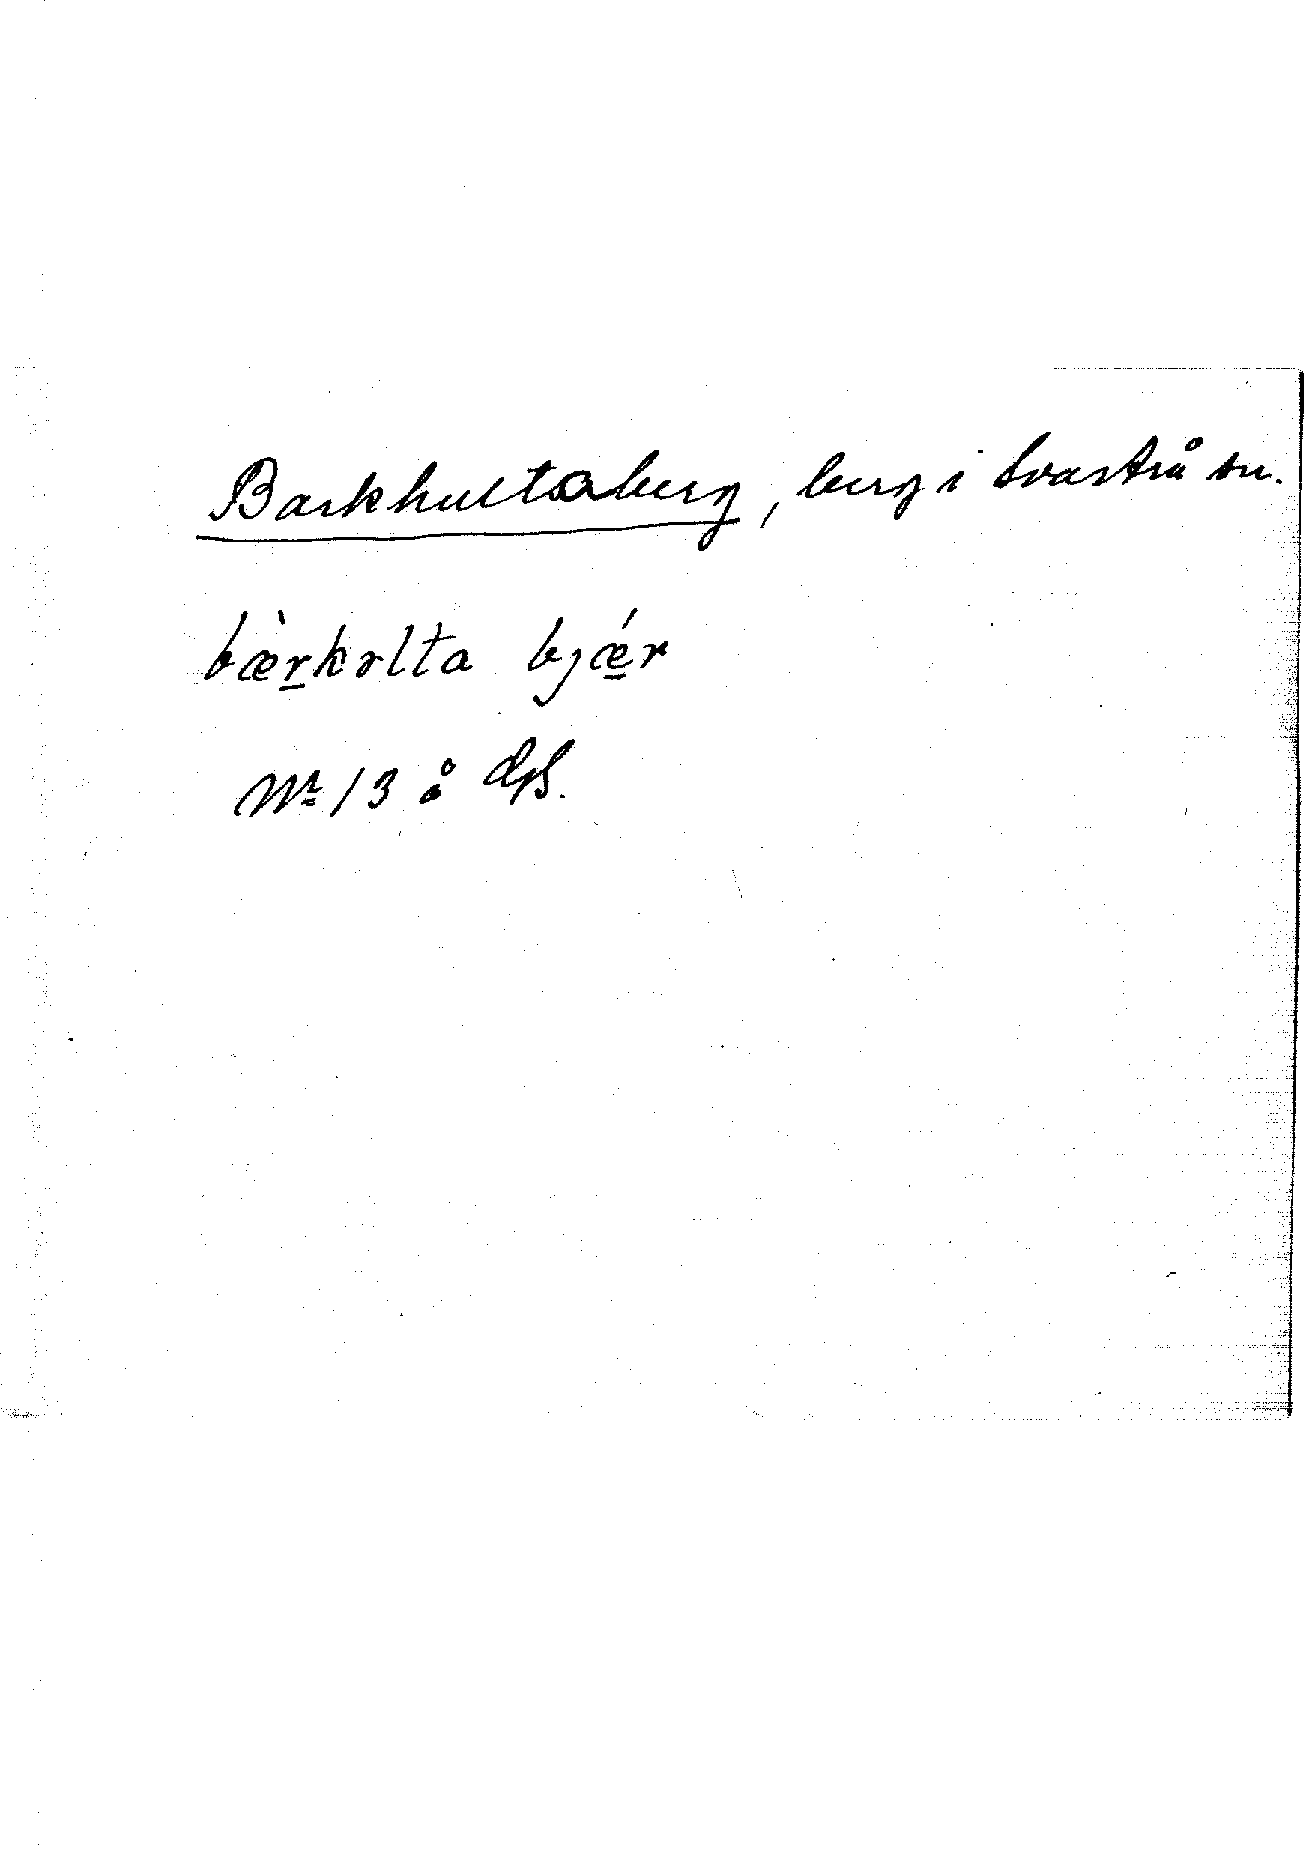 Barkhultaberg, berg i Svartrå sn.
bæ̀rkɤlta bjǽr
Nr 13 å